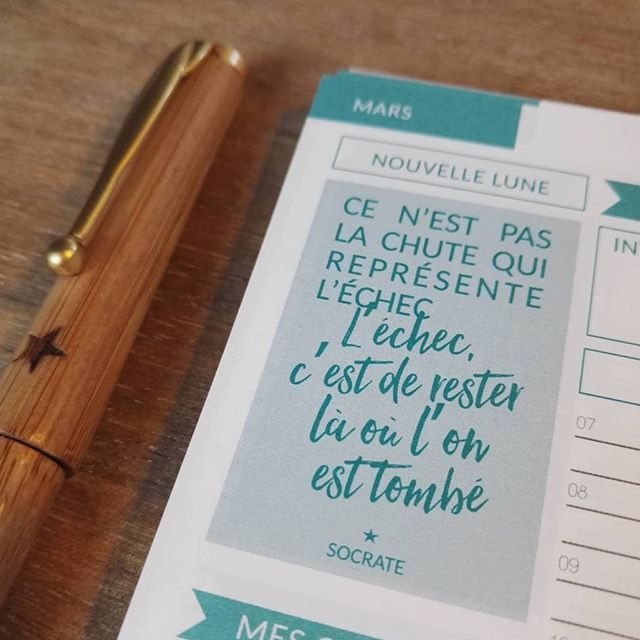 MARS
NOUVELLE LUNE
CE N'EST PAS
LA CHUTE QUI
REPRÉSENTE
L'ÉCHEC
L'échec,
c'est de rester
là où l'on
est tombé
SOCRATE
MES
07
08
09